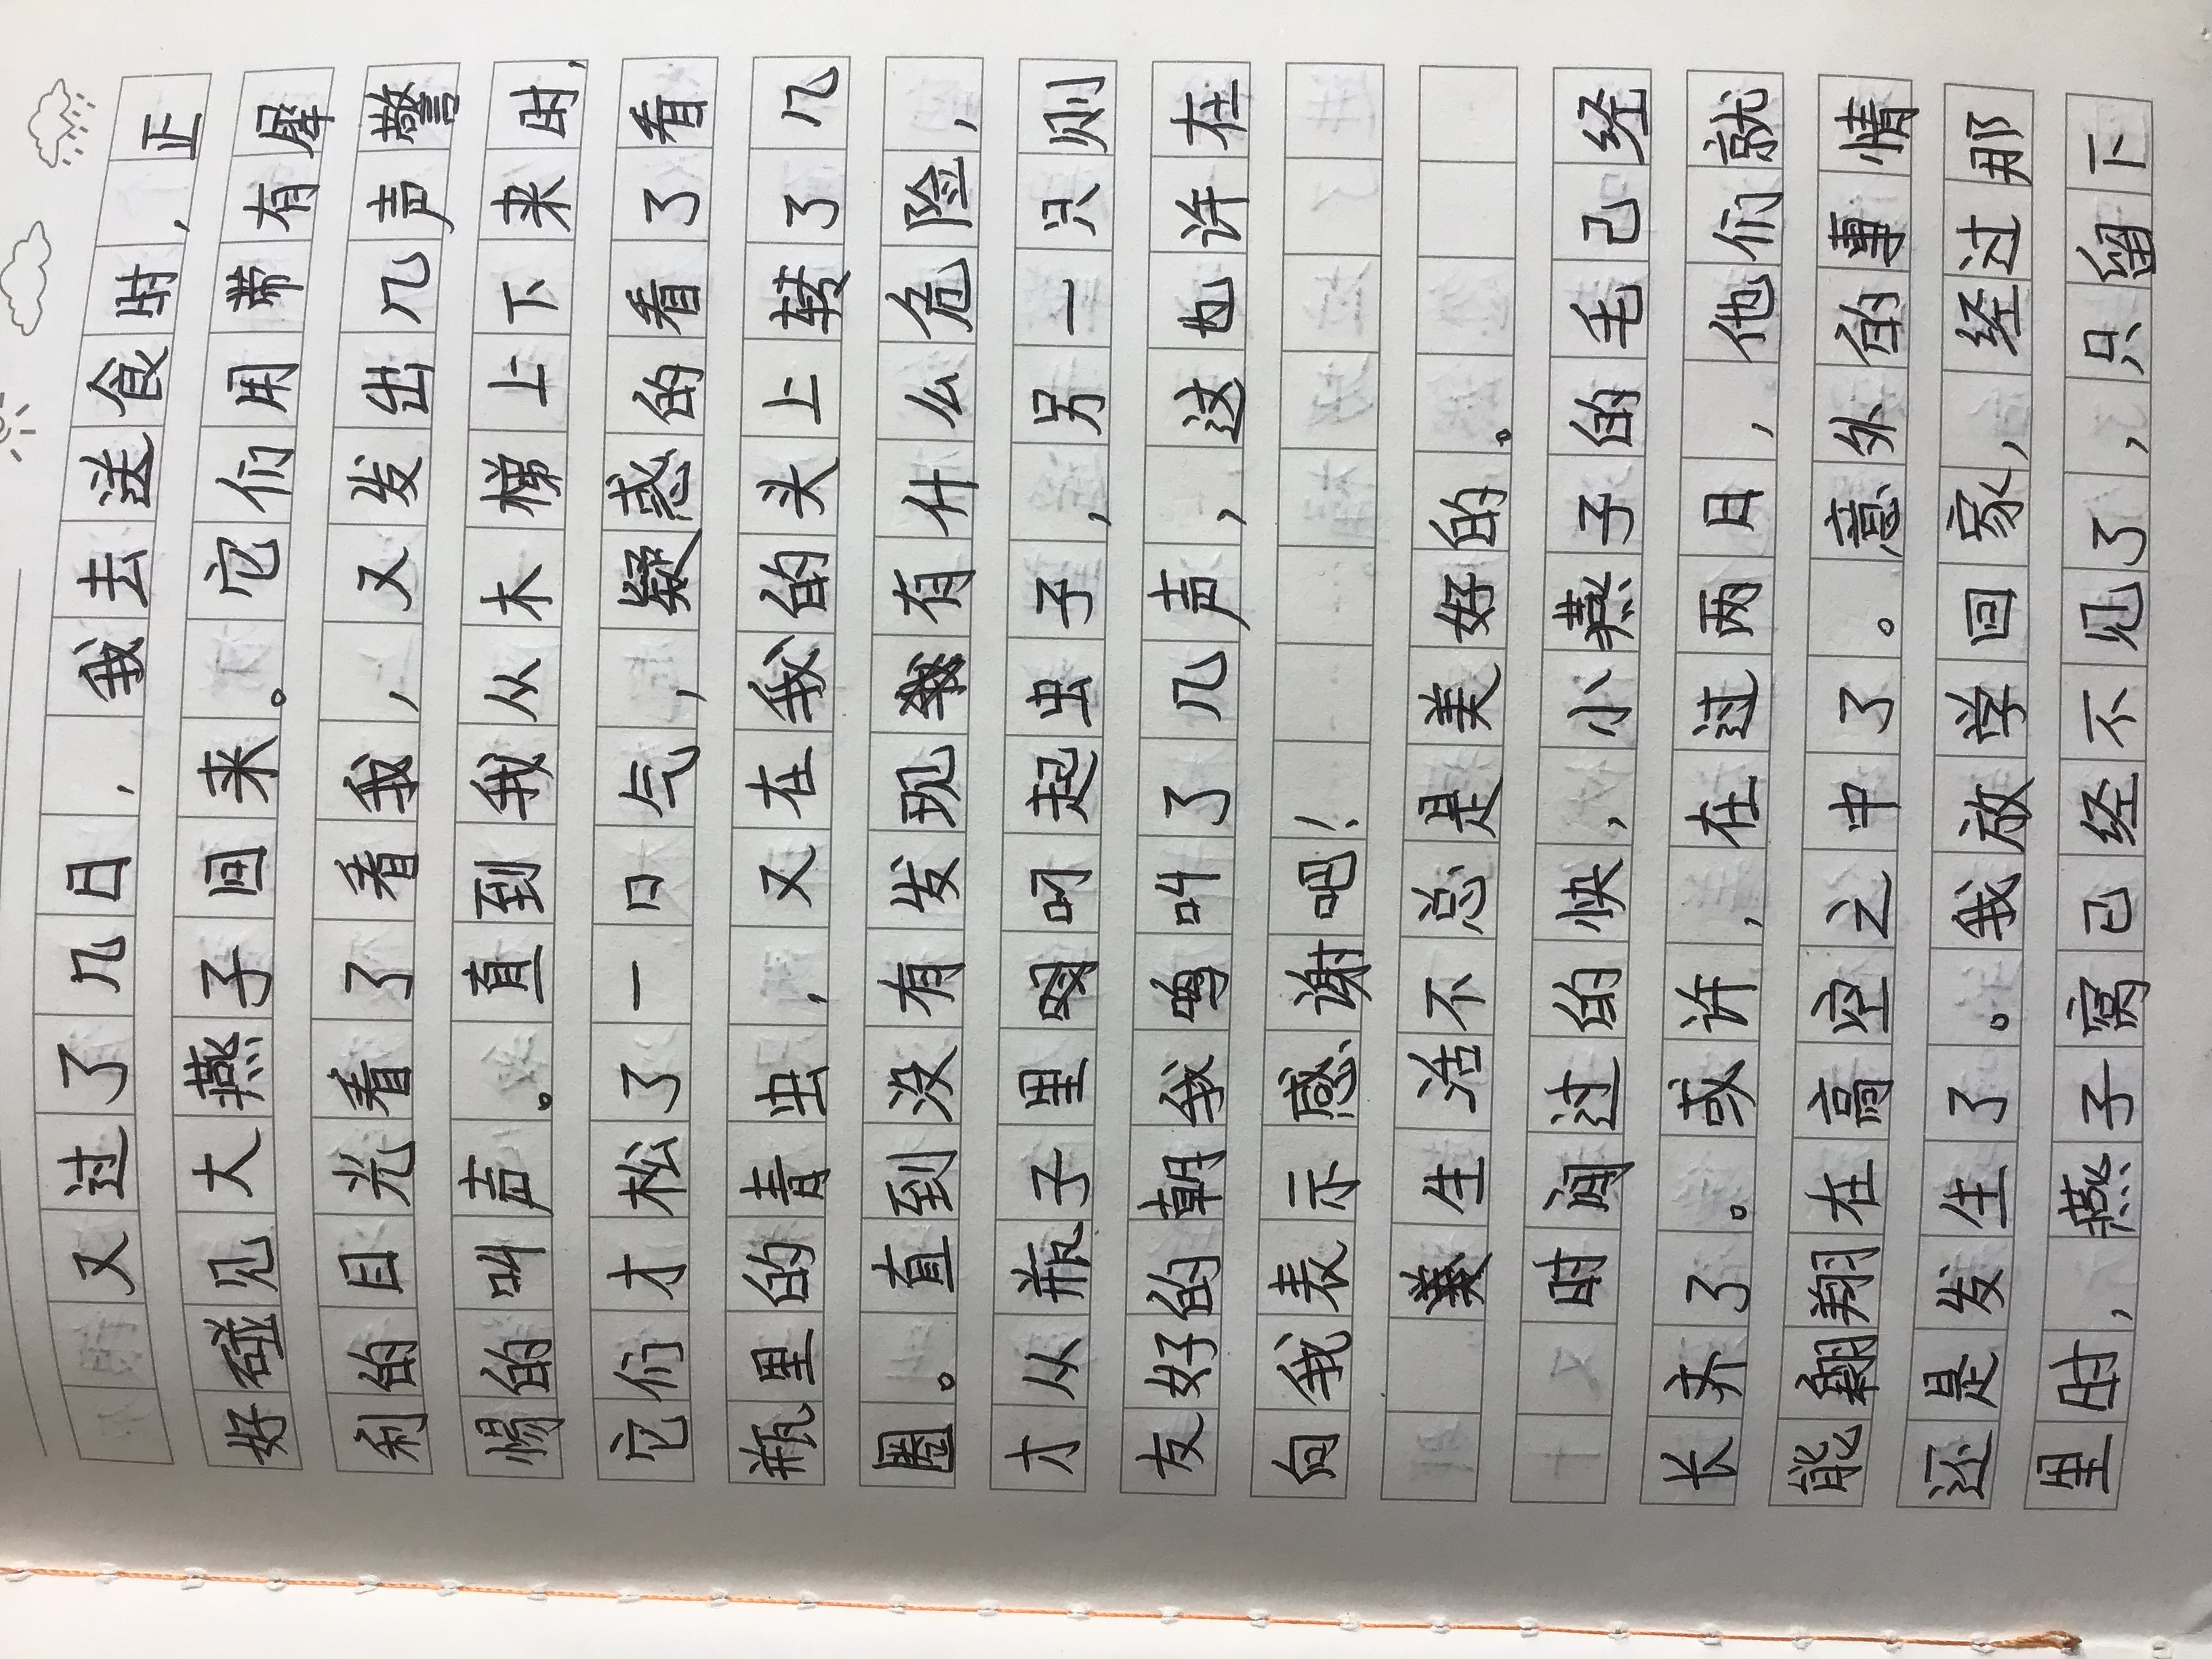 又过了几日，我去送食时，正
好碰见大燕子回来。它们用带有犀
利的目光看了看我，又发出几声警
惕的叫声。直到我从木梯上下来时，
它们才松了一口气，疑惑的看了看
瓶里的青虫，又在我的头上转了几
圈。直到没有发现有什么危险，
才从瓶子里叼起虫子，另一只则
友好的朝我鸣叫了几声，这也许在
向我表示感谢吧！
生活不总是美好的。
时间过的快，小燕子的毛己经
长齐了。或许，在过两日，他们就
能翱翔在高空之中了。意外的事情
还是发生了。我放学回家，经过那
里时，燕子窝已经不见了，只留下